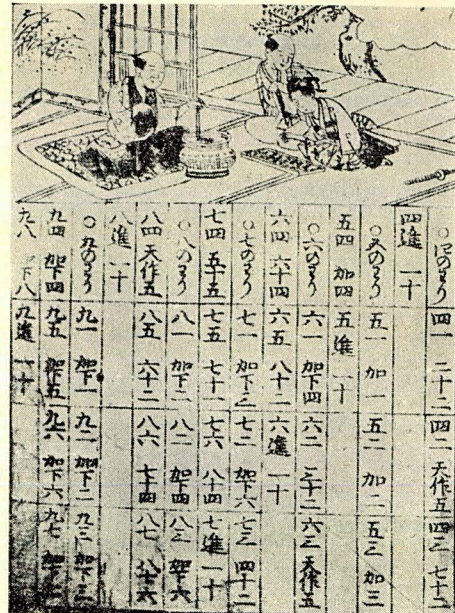 ○四のわり 四一 二十二 四二 天作五 四三 七十二
四進 一十
○五のわり 五一 加一 五二 加二 五三 加三
五四 加四 五進 一十
○六のわり 六一 加下四 六二 三十二 六三 天作五
六四 六十四 六五 八十二 六進 一十
○七のわり 七一 加下三 七二 加下六 七三 四十二
七四 五十五 七五 七十一 七六 八十四 七進 一十
○八のわり 八一 加下二 八二 加下四 八三 加下六
八四 天作五 八五 六十二 八六 七十四 八七 八十六
八進 一十
○九のわり 九一 加下一 九二 加下二 九三 加下三
九四 加下四 九五 加下五 九六 加下六 九七
九八 加下八 九進 一十